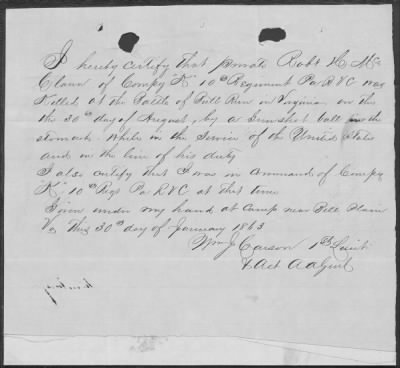 I hereby certify that private Robt H. Mc
Clown of Compy "K" 10th Regiment Pa R V C was
Killed at the Battle of Bull Run in Virginia on the
the 30th day of August, by a Gunshot ball in the
stomach. While in the Service of the United States
and in the line of his duty
I also certify that I was in command of Compy
"K" 10th Regt Pa R V C at that time
Given under my hand at Camp near Bell Plain
Va this 30th day of January 1863
Wm J Carson 1st Lieut
& Act